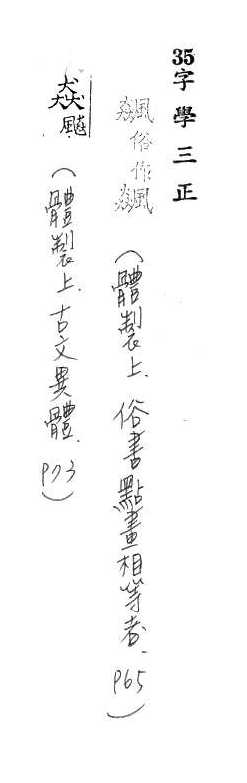 35字學三正
飆俗作飆（體製上．俗書點畫相等者．P65）
（體製上．古文異體．P73）